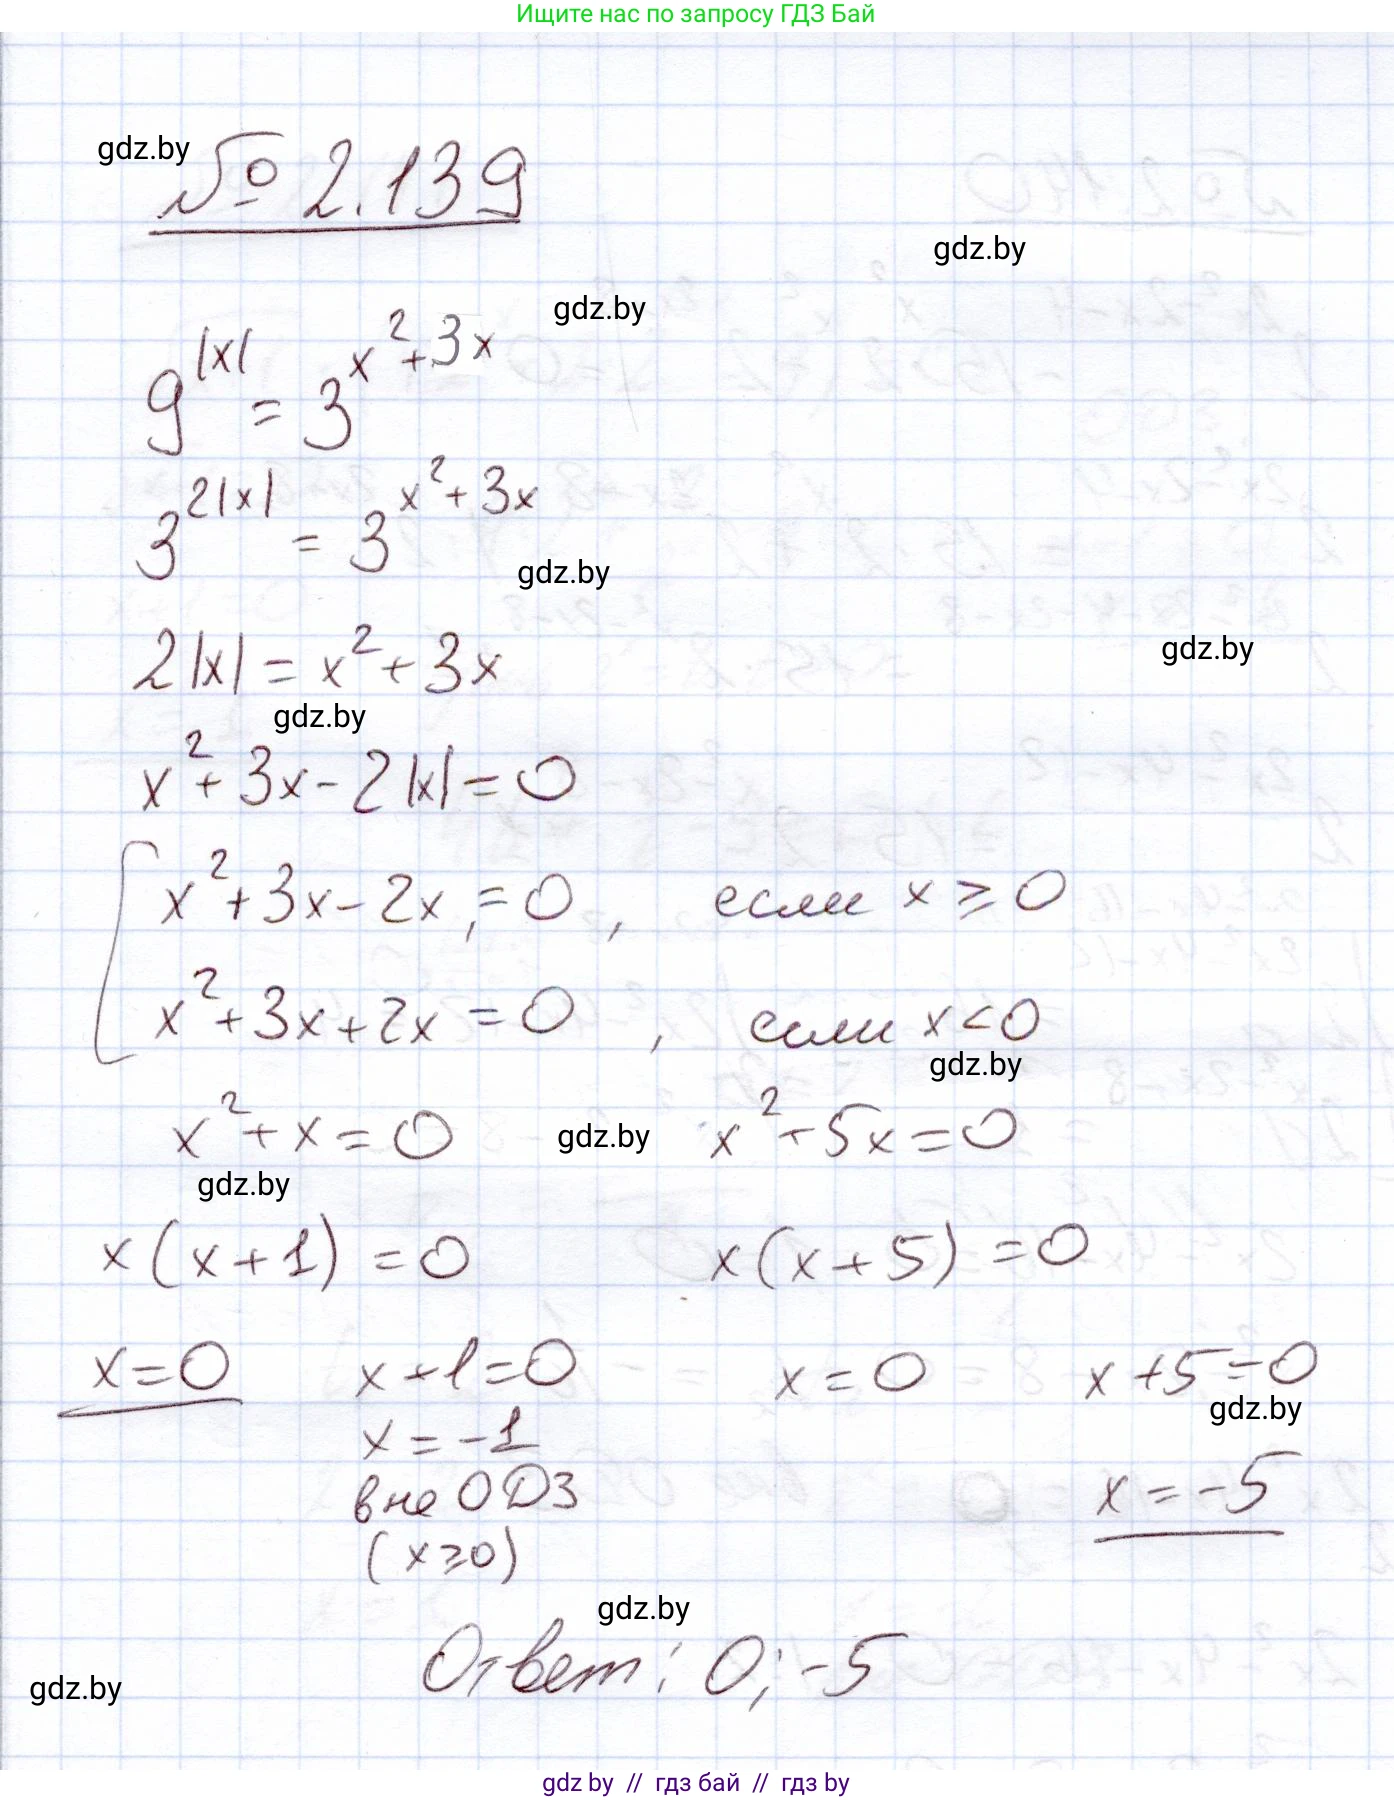 Ищите нас по запросу ГДЗ Бай
gdz.by
№ 2.139
gdz.by
gdz.by
9^|x| = 3^(x²+3x)
3^(2|x|) = 3^(x²+3x)
gdz.by
2|x| = x²+3x
gdz.by
gdz.by
x²+3x-2|x|=0
x²+3x-2x=0, если x ≥ 0
x²+3x+2x=0, если x<0
gdz.by
x²+x=0 gdz.by x²+5x=0
gdz.by
x(x+1)=0 x(x+5)=0
x=0 x+1=0 x=0 x+5=0
gdz.by
x=-1
вне ОДЗ x=-5
(x≥0)
gdz.by
Ответ: 0; -5
gdz.by
gdz by // гдз бай // гдз by